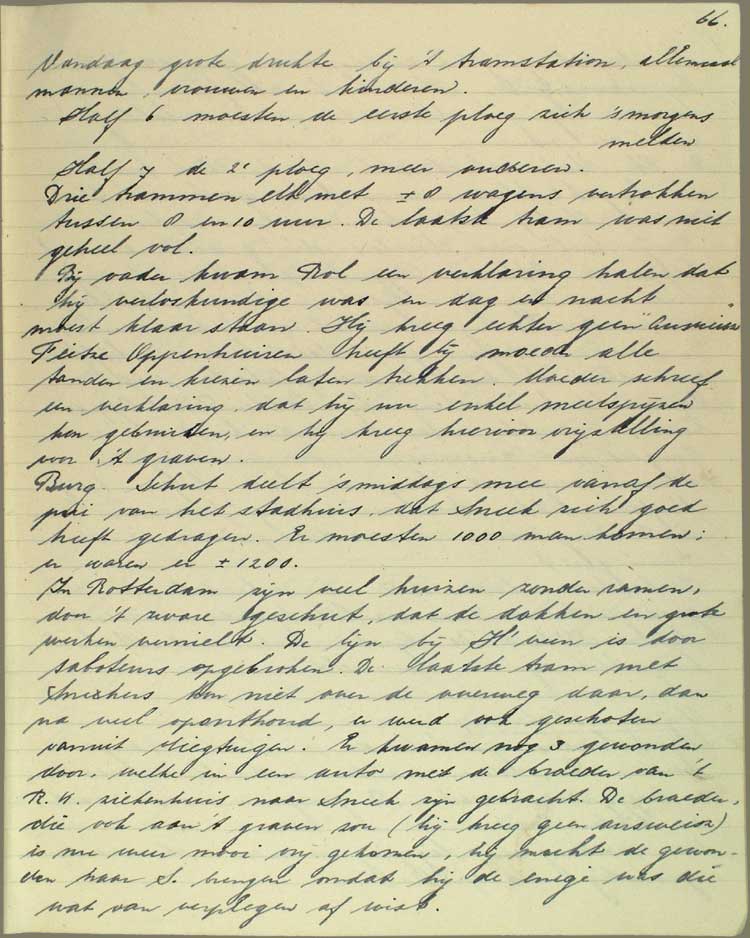 66.
Vandaag grote drukte bij 't tramstation, allemaal
mannen, vrouwen en kinderen.
Half 6 moesten de eerste ploeg zich 's morgens
melden
Half 7 de 2e ploeg, meer anderen.
Drie trammen elk met ± 8 wagens vertrokken
tussen 8 en 10 uur. De laatste tram was niet
geheel vol.
Bij vader kwam Rol een verklaring halen dat
hij verloskundige was en dag en nacht
moest klaar staan. Hij kreeg echter geen "Ausweiss"
Feitse Oppenhuizen heeft bij moeder alle
tanden en kiezen laten trekken. Moeder schreef
een verklaring dat hij nu enkel meelspijzen
kon gebruiken, en hij kreeg hiervoor vrijstelling
voor 't graven.
Burg. Schut deelt 's middags mee vanaf de
pui van het stadhuis, dat Sneek zich goed
heeft gedragen. Er moesten 1000 man komen;
er waren er ± 1200.
In Rotterdam zijn veel huizen zonder ramen,
door 't zware geschut, dat de dokken en grote
werken vernielt. De lijn bij H'veen is door
saboteurs opgebroken. De laatste tram met
Snekers kon niet over de overweg daar, dan
na veel oponthoud, er werd ook geschoten
vanuit vliegtuigen. Er kwamen nog 3 gewonden
door, welke in een auto met de broeder van 't
R.K. ziekenhuis naar Sneek zijn gebracht. De broeder,
die ook aan 't graven zou (hij kreeg geen ausweiss)
is nu weer mooi vrij gekomen, hij mocht de gewon-
den naar S. brengen omdat hij de enige was die
wat van verplegen af wist.